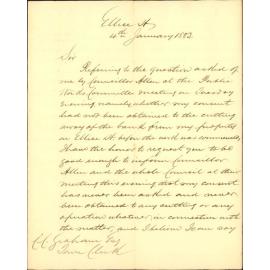 Ellice St
4th January 1883
Sir
Referring to the question asked of
me by Councillor Allen at the Public
Works Committee meeting on Tuesday
evening, namely whether my consent
had not been obtained to the cutting
away of the bank from my property
in Ellice St before the work was commenced,
I have the honor to request you to be
good enough to inform Councillor
Allen and the whole Council at their
meeting this evening that my consent
has never been asked and never
been obtained to any cutting or any
operation whatever in connection with
the matter, and I believe I can say
Graham Esq
Town Clerk